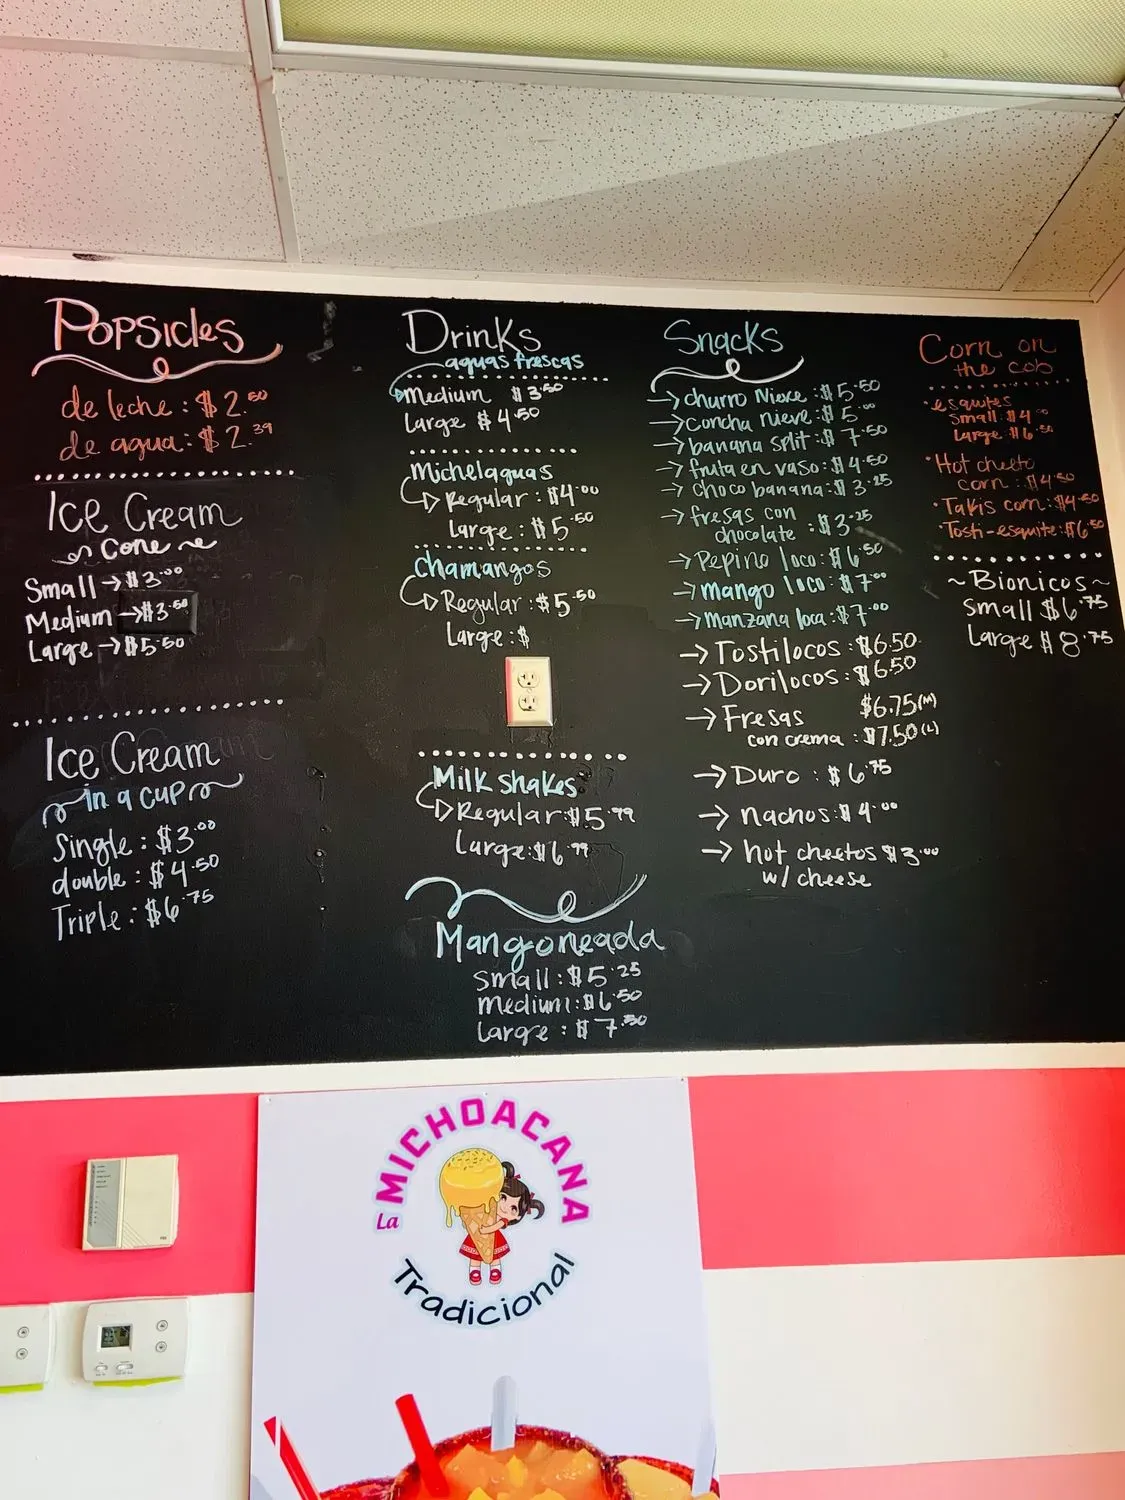 Popsicles
de leche : $2.50
de agua : $2.39
Ice Cream
Cone
Small → $3.00
Medium → $3.50
Large → $5.50
Ice Cream
in a cup
Single : $3.00
double : $4.50
Triple : $6.75
Drinks
aguas frescas
Medium $3.50
Large $4.50
Michelaguas
Regular : $4.00
Large : $5.50
Chamangos
Regular : $5.50
Large : $
Milk shakes
Regular : $5.99
Large : $6.99
Mangoneada
Small : $5.25
Medium : $6.50
Large : $7.50
Snacks
→ churro Nieve : $5.50
→ Concha nieve : $5.00
→ banana split : $7.50
→ fruta en vaso : $4.50
→ choco banana : $3.25
→ fresas con
chocolate : $3.25
→ Pepino loco : $6.50
→ mango loco : $7.00
→ manzana loca : $7.00
→ Tostilocos : $6.50
→ Dorilocos : $6.50
→ Fresas $6.75 (M)
con crema : $7.50 (L)
→ Duro : $6.75
→ nachos : $4.00
→ hot cheetos $3.00
w/ cheese
Corn on
the cob
• esquites
Small : $4.00
Large $6.50
• Hot cheeto
corn : $4.50
• Takis corn : $4.50
• Tosti-esquite : $6.50
~ Bionicos ~
Small $6.75
Large $8.75
La MICHOACANA
Tradicional